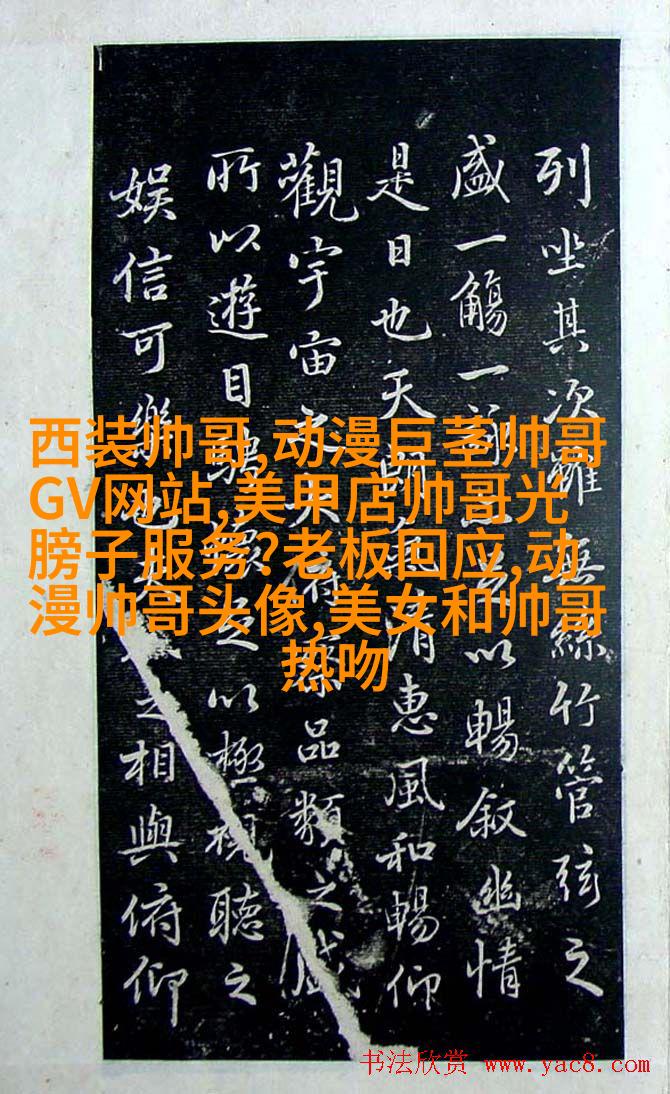 列坐其次雖無絲竹管弦之
盛一觴一詠以暢叙幽情
是日也天朗氣清惠風和暢仰
觀宇宙之大俯察品類之盛
所以遊目騁懷足以極視聽之
娛信可樂也夫之相與俯仰
西装帅哥,动漫巨茎帅哥
GV网站,美甲店帅哥光
膀子服务?老板回应,动
漫帅哥头像,美女和帅哥
热吻
书法欣赏 www.yac8.com